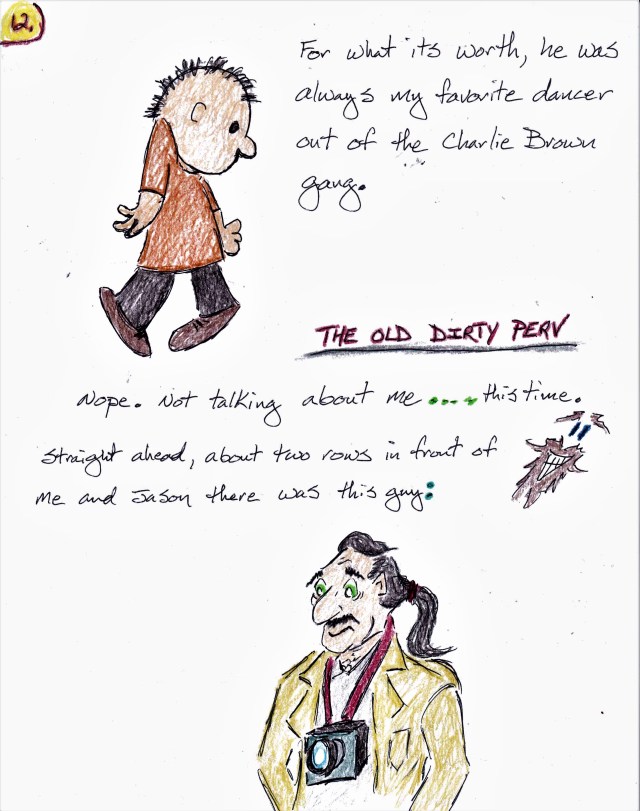 12.
For what its worth, he was
always my favorite dancer
out of the Charlie Brown
gang.
THE OLD DIRTY PERV
Nope. Not talking about me .... this time.
Straight ahead, about two rows in front of
me and Jason there was this guy: